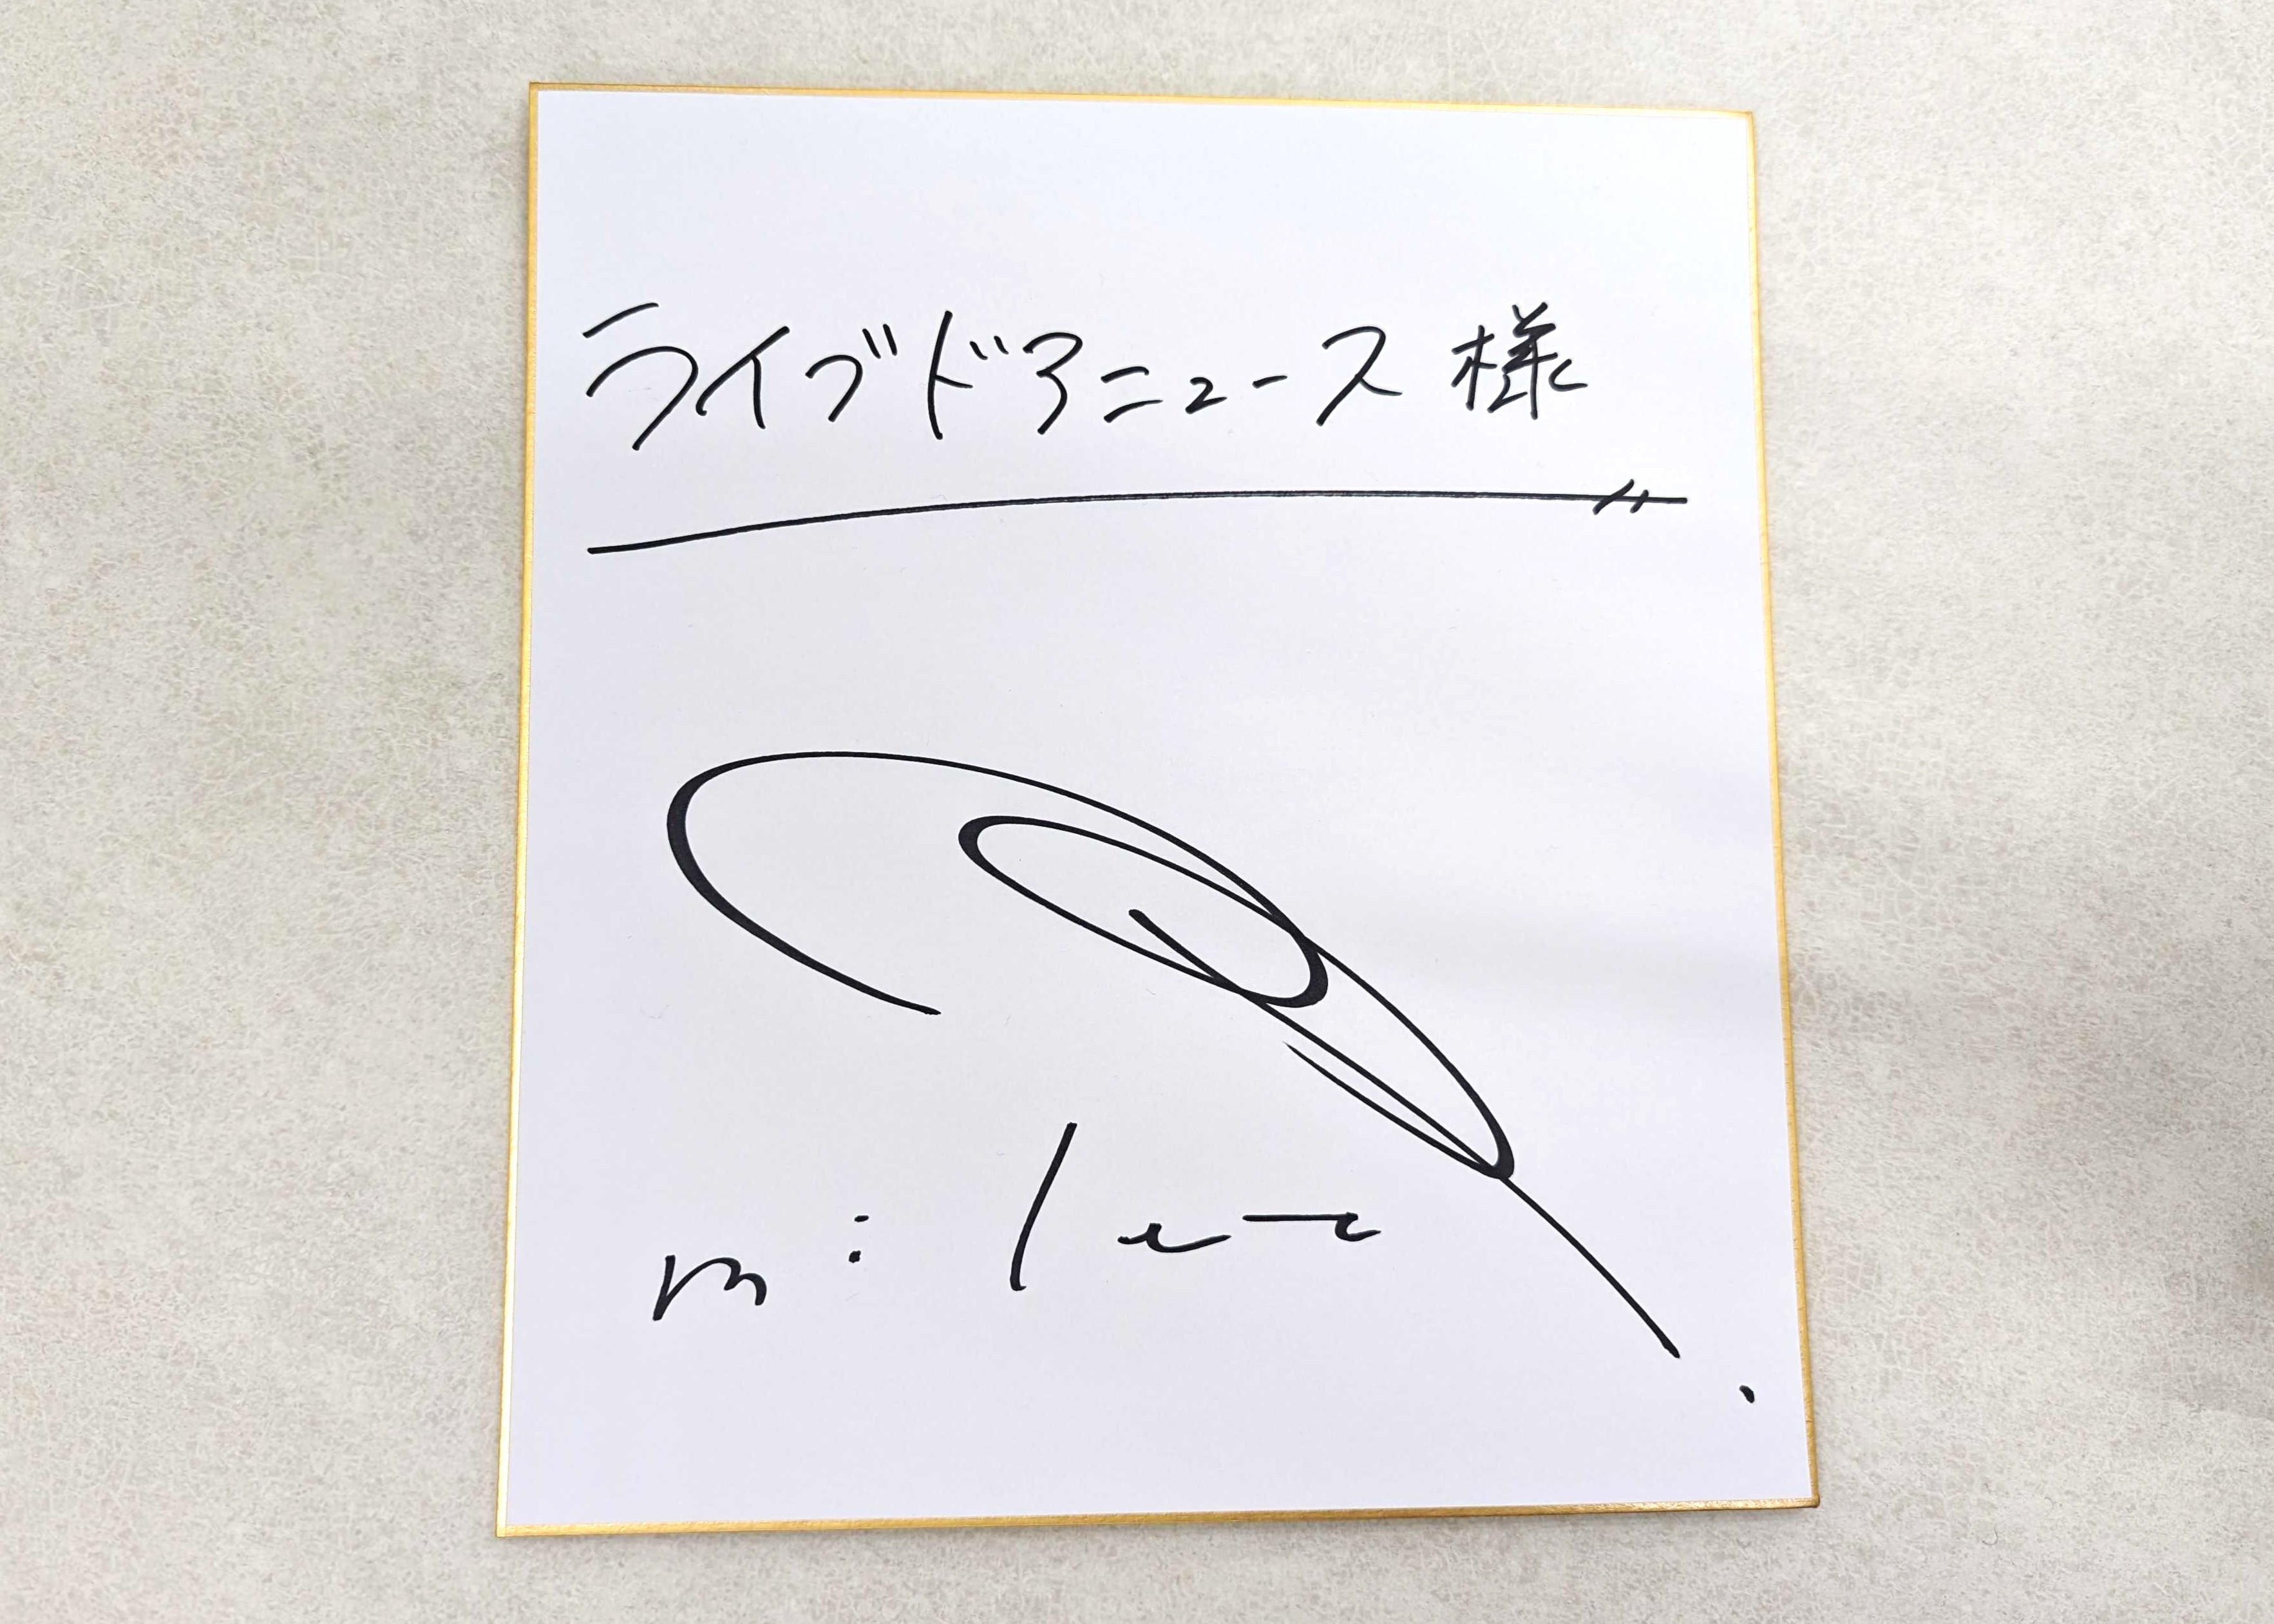 ライブドアニュース 様
milet